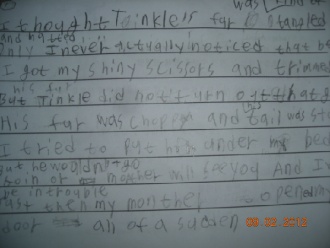 was
I thought Tinkle's fur so tangled
and knotted
only I never actually noticed that b
I got my shiny scissors and trimmed
his fur
But Tinkle did not turn out that g
His fur was choppy and his tail was st
I tried to put him under my bed
but he wouldn't go
soin or my mother will see you and I
be in trouble
Just then my mother opened
door all of a sudden
09.02.2012